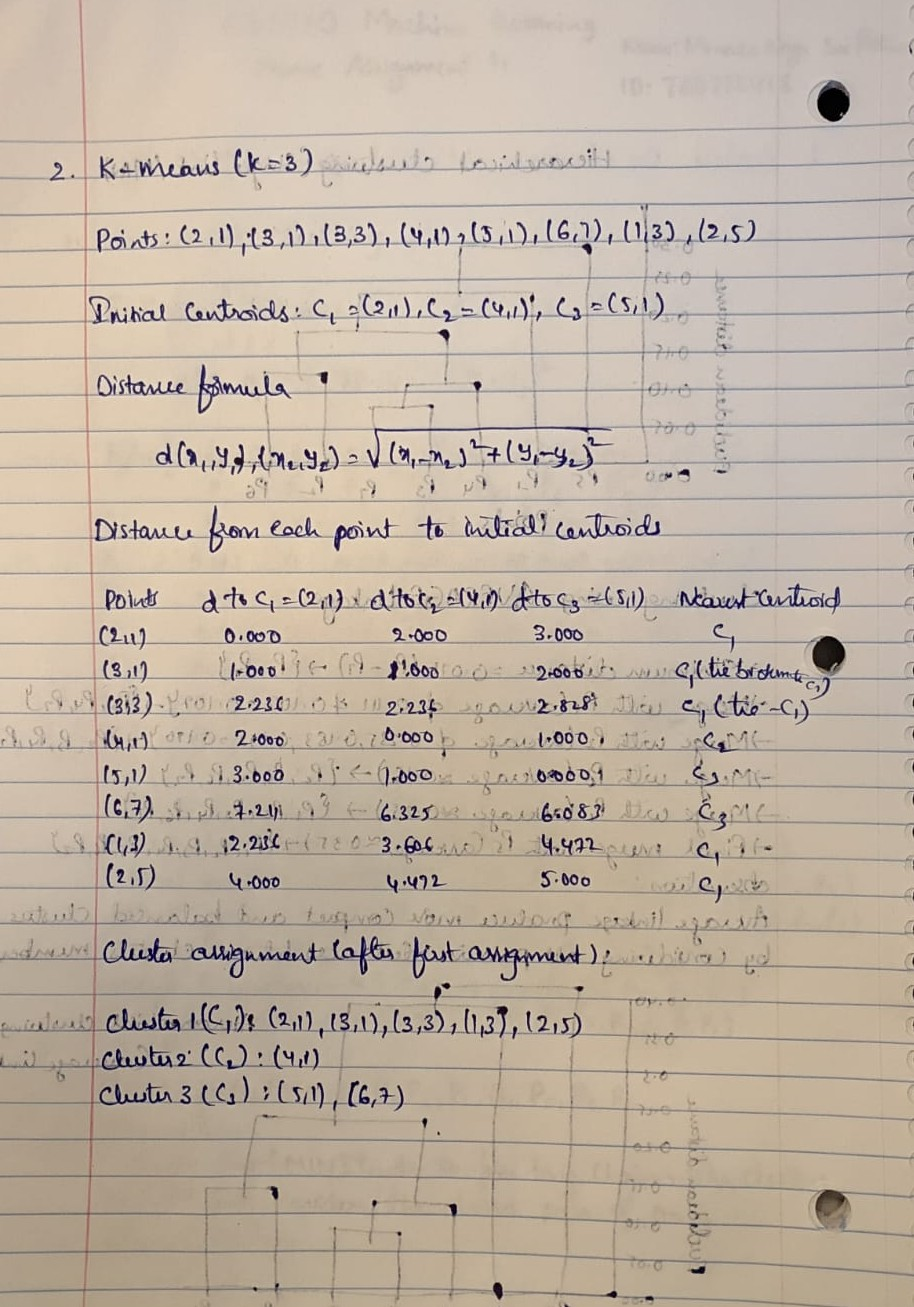 2. K-means (K=3)
Points: (2,1), (3,1), (3,3), (4,1), (5,1), (6,7), (1,3), (2,5)
Initial Centroids: C₁ = (2,1), C₂ = (4,1), C₃ = (5,1)
Distance formula
d(x₁,y₁), (x₂,y₂) = √(x₁-x₂)²+(y₁-y₂)²
Distance from each point to initial centroids
Points d to C₁ = (2,1) d to C₂ = (4,1) d to C₃ = (5,1) Nearest Centroid
(2,1) 0.000 2.000 3.000 C₁
(3,1) 1.000 1.000 2.000 C₁ (tie broken to C₁)
(3,3) 2.236 2.236 2.828 C₁ (tie - C₁)
(4,1) 2.000 0.000 1.000 C₂
(5,1) 3.000 1.000 0.000 C₃
(6,7) 7.211 6.325 6.083 C₃
(1,3) 2.236 3.606 4.472 C₁
(2,5) 4.000 4.472 5.000 C₁
Cluster assignment (after first assignment):
Cluster 1 (C₁): (2,1), (3,1), (3,3), (1,3), (2,5)
Cluster 2 (C₂): (4,1)
Cluster 3 (C₃): (5,1), (6,7)